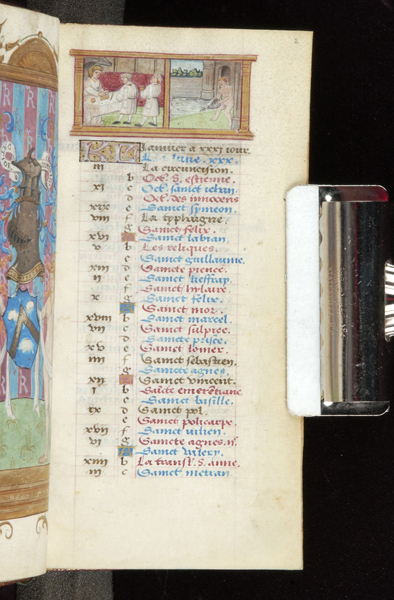 Januier a xxxi iour.
La lune . xxx.
iii La circuncision.
b Oct. s. estienne.
xi c Oct. sainct iehan
d Oct. des innocens
xix e Sainct symeon.
viii f La typhaigne.
g Sainct felix.
xvi Sainct lubian.
v b Les reliques.
c Sainct guillaume.
xiii d
ii e Sainct
f Sainct hylaire.
x g Sainct felix.
Sainct mor.
xviii b Sainct marcel.
vii c Sainct sulpice.
d Saincte prisce.
xv e Sainct lomer.
iiii f Sainct sebastien.
g Saincte agnes.
xii Sainct vincent.
i b Saicte emerētiane
c Sainct babille.
ix d Sainct pol.
e Sainct policarpe.
xvii f Sainct iulien.
vi g Saincte agnes. ii.
Sainct valery.
xiiii b La transl. s. anne.
iii c Sainct metran.